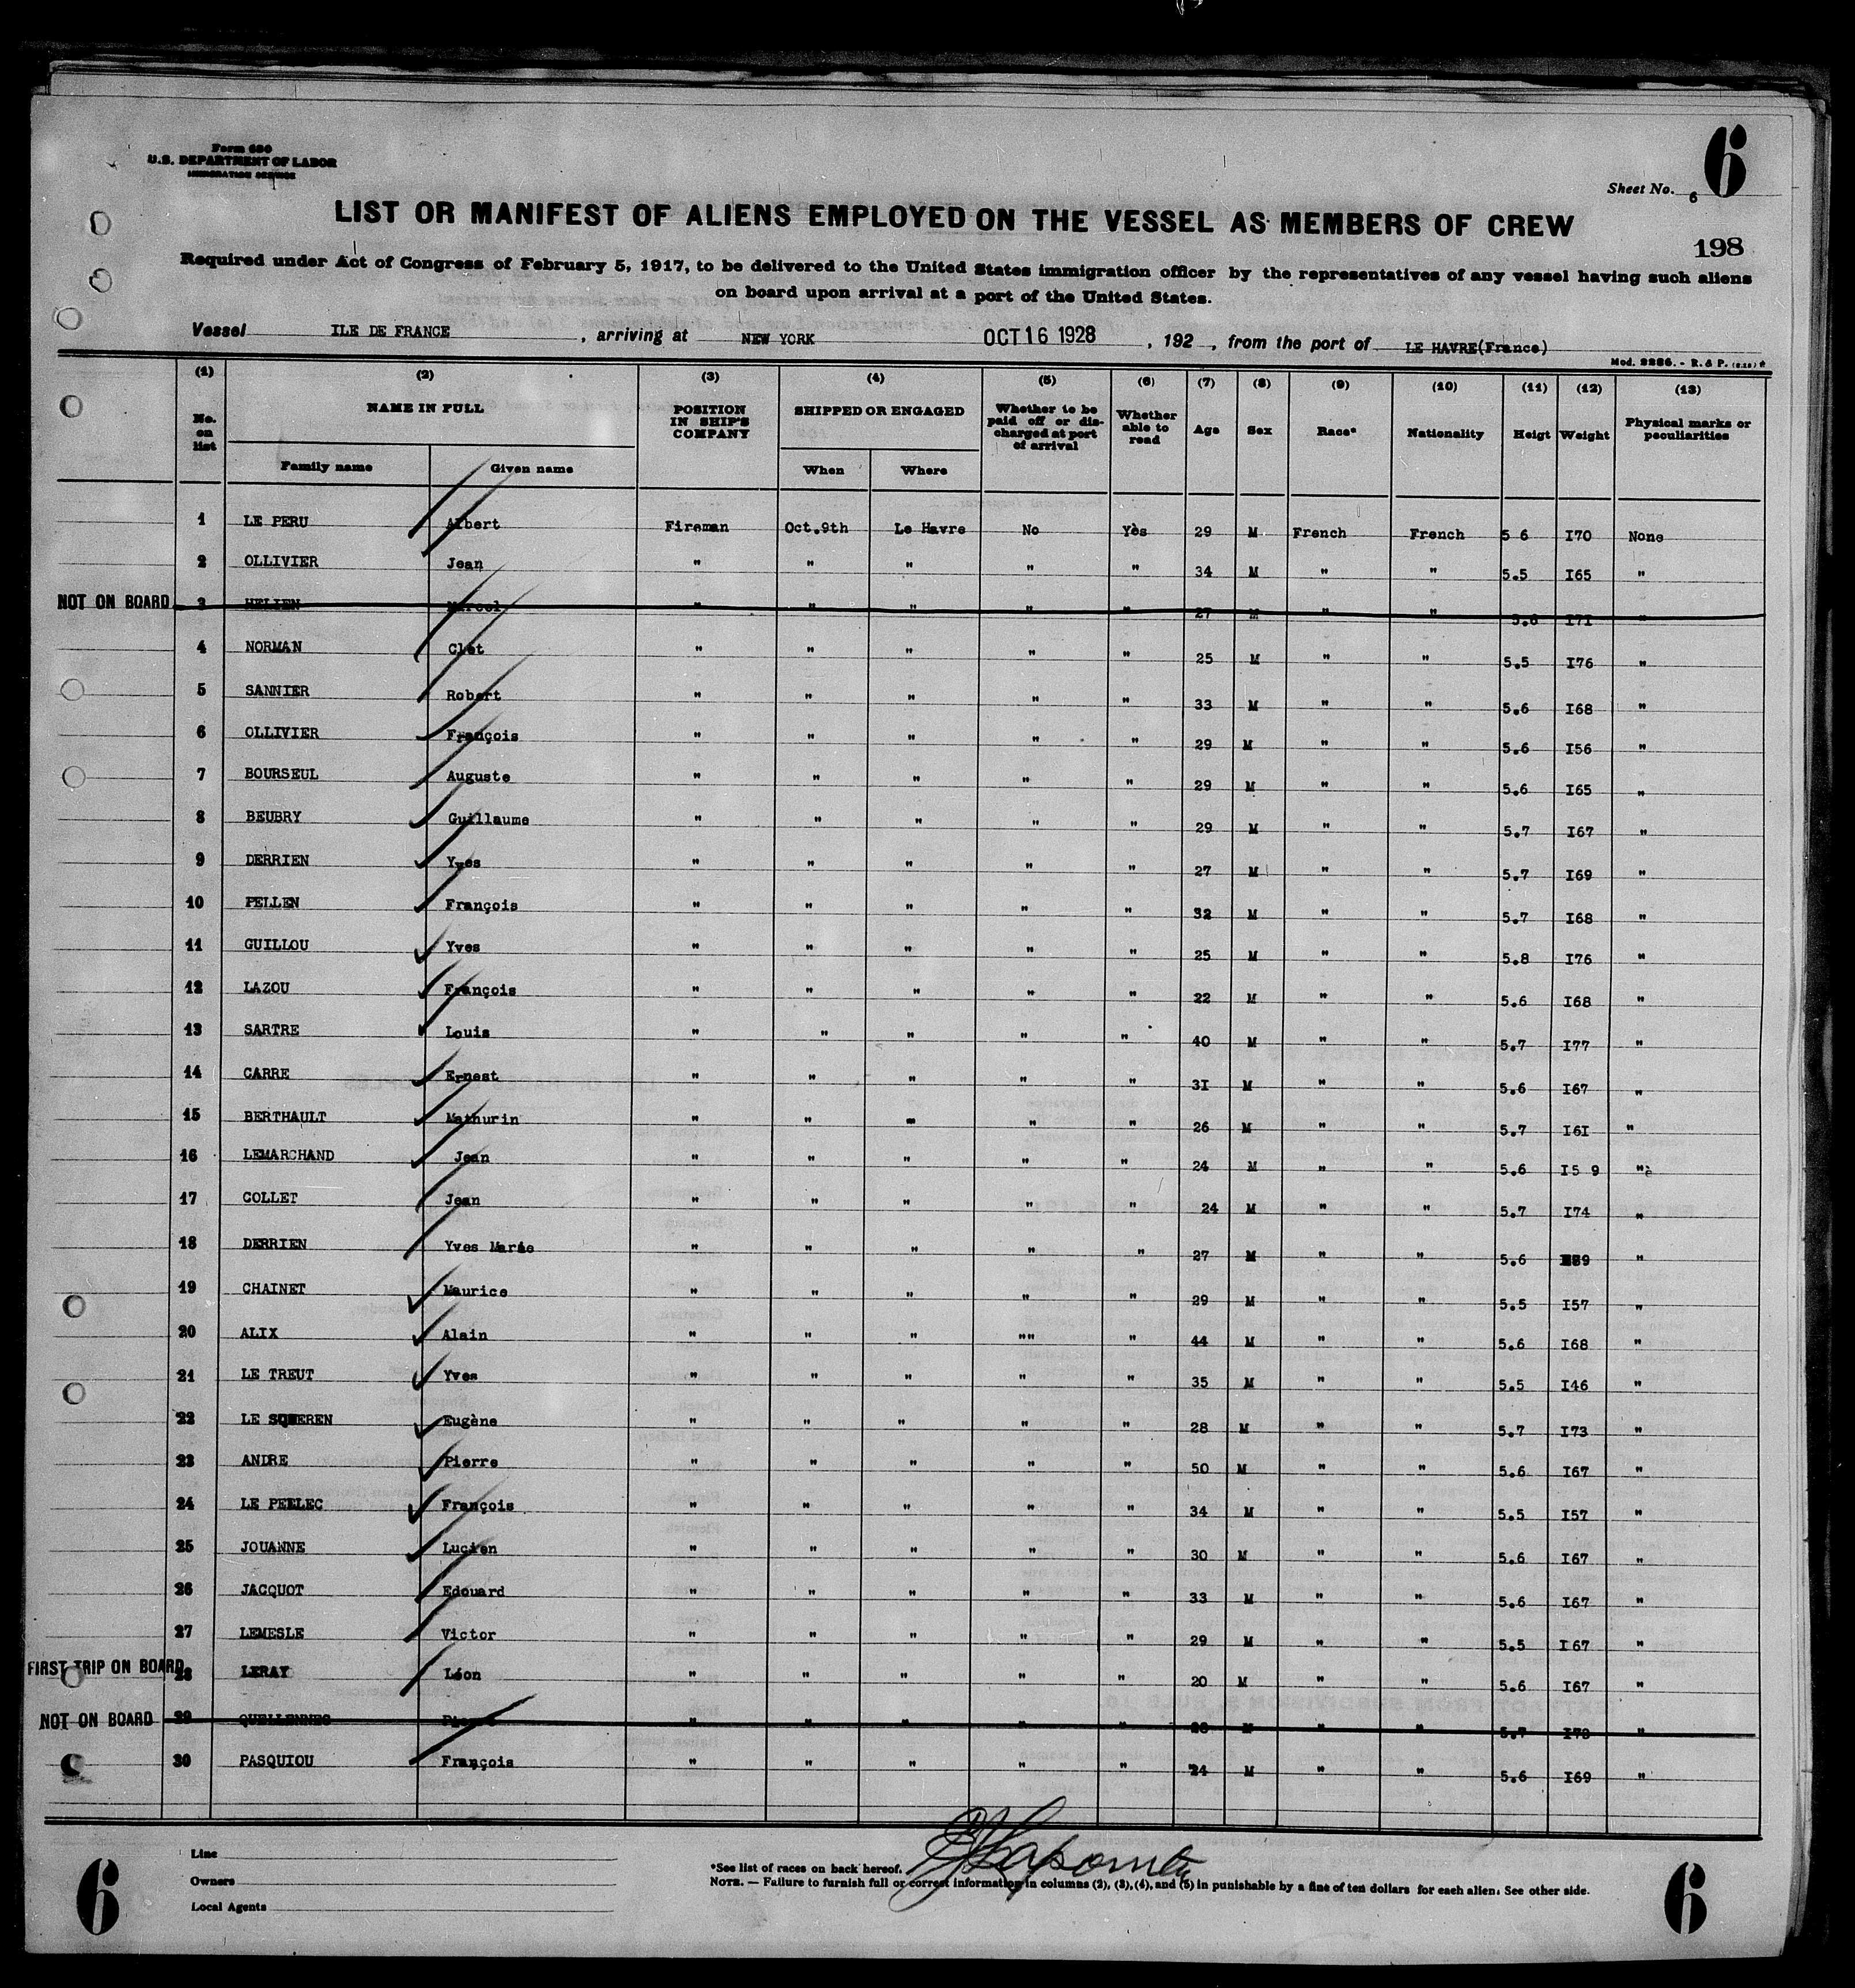 Form 680
U.S. DEPARTMENT OF LABOR
IMMIGRATION SERVICE
6
Sheet No. 6
LIST OR MANIFEST OF ALIENS EMPLOYED ON THE VESSEL AS MEMBERS OF CREW
198
Required under Act of Congress of February 5, 1917, to be delivered to the United States immigration officer by the representatives of any vessel having such aliens
on board upon arrival at a port of the United States.
Vessel ILE DE FRANCE , arriving at NEW YORK OCT 16 1928 , 192 , from the port of LE HAVRE(France)
Mod. 2286. - R.& P.
(1) (2) (3) (4) (5) (6) (7) (8) (9) (10) (11) (12) (13)
No. on list NAME IN FULL Family name Given name POSITION IN SHIP'S COMPANY SHIPPED OR ENGAGED When Where Whether to be paid off or discharged at port of arrival Whether able to read Age Sex Race* Nationality Heigt Weight Physical marks or peculiarities
1 LE PERU Albert Fireman Oct.9th Le Havre No Yès 29 M French French 5 6 I70 None
2 OLLIVIER Jean " " " " " 34 M " " 5.5 I65 "
NOT ON BOARD 3 HELIEN Marcel " " " " " 27 M " " 5.6 I7I "
4 NORMAN Clet " " " " " 25 M " " 5.5 I76 "
5 SANNIER Robert " " " " " 33 M " " 5.6 I68 "
6 OLLIVIER François " " " " " 29 M " " 5.6 I56 "
7 BOURSEUL Auguste " " " " " 29 M " " 5.6 I65 "
8 BEUBRY Guillaume " " " " " 29 M " " 5.7 I67 "
9 DERRIEN Yves " " " " " 27 M " " 5.7 I69 "
10 PELLEN François " " " " " 32 M " " 5.7 I68 "
11 GUILLOU Yves " " " " " 25 M " " 5.8 I76 "
12 LAZOU François " " " " " 22 M " " 5.6 I68 "
13 SARTRE Louis " " " " " 40 M " " 5.7 I77 "
14 CARRE Ernest " " " " " 3I M " " 5.6 I67 "
15 BERTHAULT Mathurin " " " " " 26 M " " 5.7 I6I "
16 LEMARCHAND Jean " " " " " 24 M " " 5.6 I5 9 "
17 COLLET Jean " " " " " 24 M " " 5.7 I74 "
18 DERRIEN Yves Marie " " " " " 27 M " " 5.6 "
19 CHAINET Maurice " " " " " 29 M " " 5.5 I57 "
20 ALIX Alain " " " "" " 44 M " " 5.6 I68 "
21 LE TREUT Yves " " " " " 35 M " " 5.5 I46 "
22 LE Eugène " " " " " 28 M " " 5.7 I73 "
23 ANDRE Pierre " " " " " 50 M " " 5.6 I67 "
24 LE PEELEC François " " " " " 34 M " " 5.5 I57 "
25 JOUANNE Lucien " " " " " 30 M " " 5.6 I67 "
26 JACQUOT Edouard " " " " " 33 M " " 5.6 I67 "
27 LEMESLE Victor " " " " " 29 M " " 5.5 I67 "
FIRST TRIP ON BOARD 28 LERAY Léon " " " " " 20 M " " 5.6 I67 "
NOT ON BOARD 29 QUELLENNEC Pierre " " " " " M " " 5.7 "
30 PASQUIOU François " " " " " 24 M " " 5.6 I69 "
Line
Owners
Local Agents
*See list of races on back hereof.
NOTE. — Failure to furnish full or correct information in columns (2), (3), (4), and (5) in punishable by a fine of ten dollars for each alien. See other side.
6
6